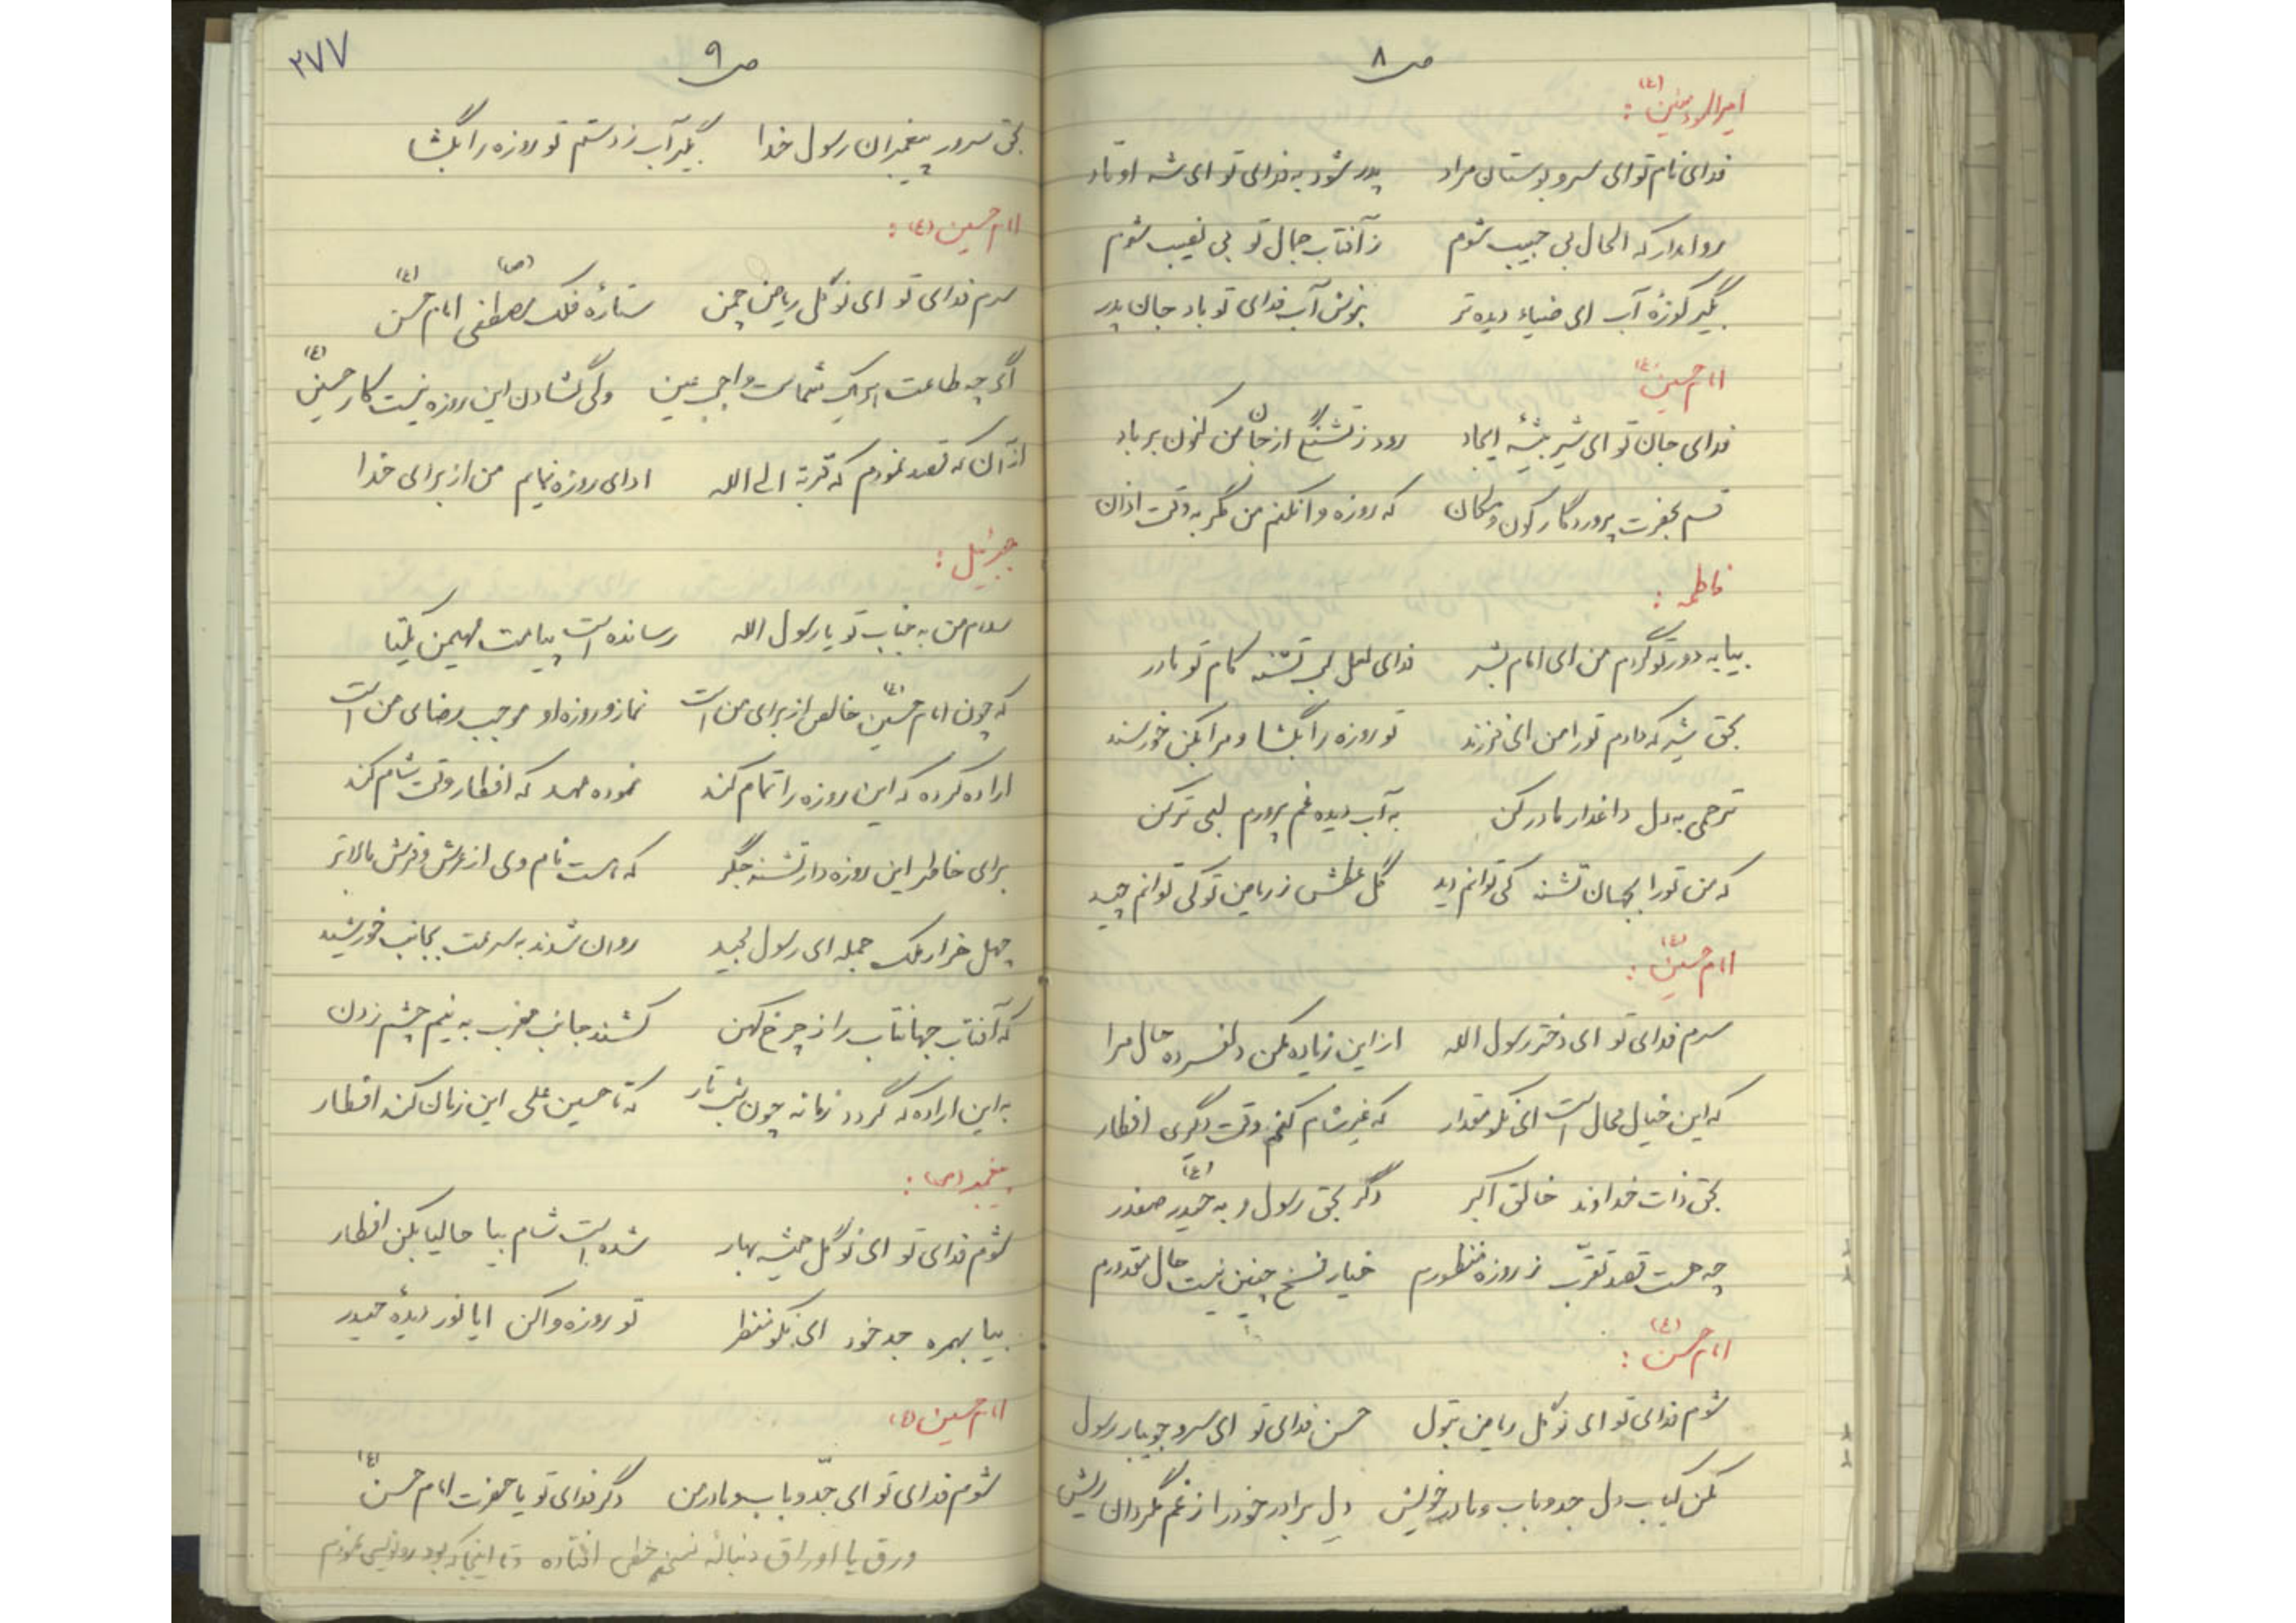 ص ۸
امیرالمؤمنین (ع) :
فدای نام تو ای سرو بوستان مراد پدر شود به فدای تو ای شه اوتاد
روا مدار که الحال بی حبیب شوم ز آفتاب جمال تو بی نصیب شوم
بگیر کوزهٔ آب ای ضیاء دیده تر بنوش آب فدای تو باد جان پدر
امام حسین (ع)
فدای جان تو ای شیر بیشهٔ ایجاد رود ز تشنگی از جان من کنون بر باد
قسم بحضرت پروردگار کون و مکان که روزه وا نکنم من مگر به وقت اذان
فاطمه :
بیا به دور تو گردم من ای امام بشر فدای لعل لب تشنه کام تو مادر
بحق شیر که دادم تو را من ای فرزند تو روزه را بگشا و مرا بکن خورسند
ترحمی به دل داغدار مادر کن به آب دیده غم پرورم لبی تر کن
که من تو را بچسان تشنه کی توانم دید گل عطش ز ریاض تو کی توانم چید
امام حسین (ع) :
سرم فدای تو ای دختر رسول الله از این زیاده مکن دلفسرده حال مرا
که این خیال محال است ای نکو مقدار که غیر شام کنم وقت دیگری افطار
بحق ذات خداوند خالق اکبر دگر بحق رسول و به حیدر (ع) صفدر
چه هست قصد تقرّب ز روزه منظورم خیار فسخ چنین نیست حال مقدورم
امام حسن (ع) :
شوم فدای تو ای نوگل ریاض بتول حسن فدای تو ای سرو جویبار رسول
مکن کباب دل جد و باب و مادر خویش دل برادر خود را ز غم مگردان ریش
۲۷۷
ص ۹
بحق سرور پیغمبران رسول خدا بگیر آب ز دستم تو روزه را بگشا
امام حسین (ع) :
سرم فدای تو ای نوگل ریاض چمن ستارهٔ فلک مصطفی (ص) امام حسن (ع)
اگر چه طاعت امر شماست واجب عین ولی گشادن این روزه نیست کار حسین (ع)
از آن که قصد نمودم که قربة الی الله ادای روزه نمایم من از برای خدا
جبرئیل :
سلام من به جناب تو یا رسول الله رسانده است پیامت مهیمن یکتا
که چون امام حسین (ع) خالص از برای من است نماز و روزه او موجب رضای من است
اراده کرده که این روزه را تمام کند نموده عهد که افطار وقت شام کند
برای خاطر این روزه دار تشنه جگر که هست نام وی از عرش و فرش بالاتر
چهل هزار ملک جمله ای رسول مجید روان شدند به سرعت بجانب خورشید
که آفتاب جهانتاب را ز چرخ کهن کشند جانب مغرب به نیم چشم زدن
به این اراده که گردد زمانه چون شب تار که تا حسین علی این زمان کند افطار
پیغمبر (ص) :
شوم فدای تو ای نوگل همیشه بهار شده است شام بیا حالیا بکن افطار
بیا بهمره جد خود ای نکو منظر تو روزه وا کن ایا نور دیدهٔ حیدر
امام حسین (ع)
شوم فدای تو ای جدّ و باب و مادر من دگر فدای تو یا حضرت امام حسن (ع)
ورق یا اوراق دنبالهٔ نسخهٔ خطی افتاده و تا اینجا که بود رونویس نمودم